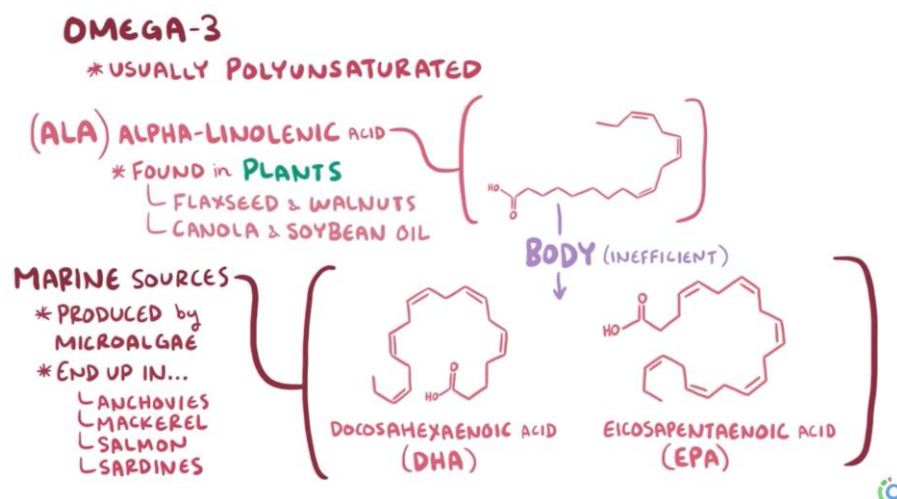 OMEGA-3
* USUALLY POLYUNSATURATED
(ALA) ALPHA-LINOLENIC ACID
* FOUND in PLANTS
FLAXSEED & WALNUTS
CANOLA & SOYBEAN OIL
HO
O
BODY (INEFFICIENT)
MARINE SOURCES
* PRODUCED by
MICROALGAE
* END UP IN...
ANCHOVIES
MACKEREL
SALMON
SARDINES
O
HO
DOCOSAHEXAENOIC ACID
(DHA)
O
HO
EICOSAPENTAENOIC ACID
(EPA)